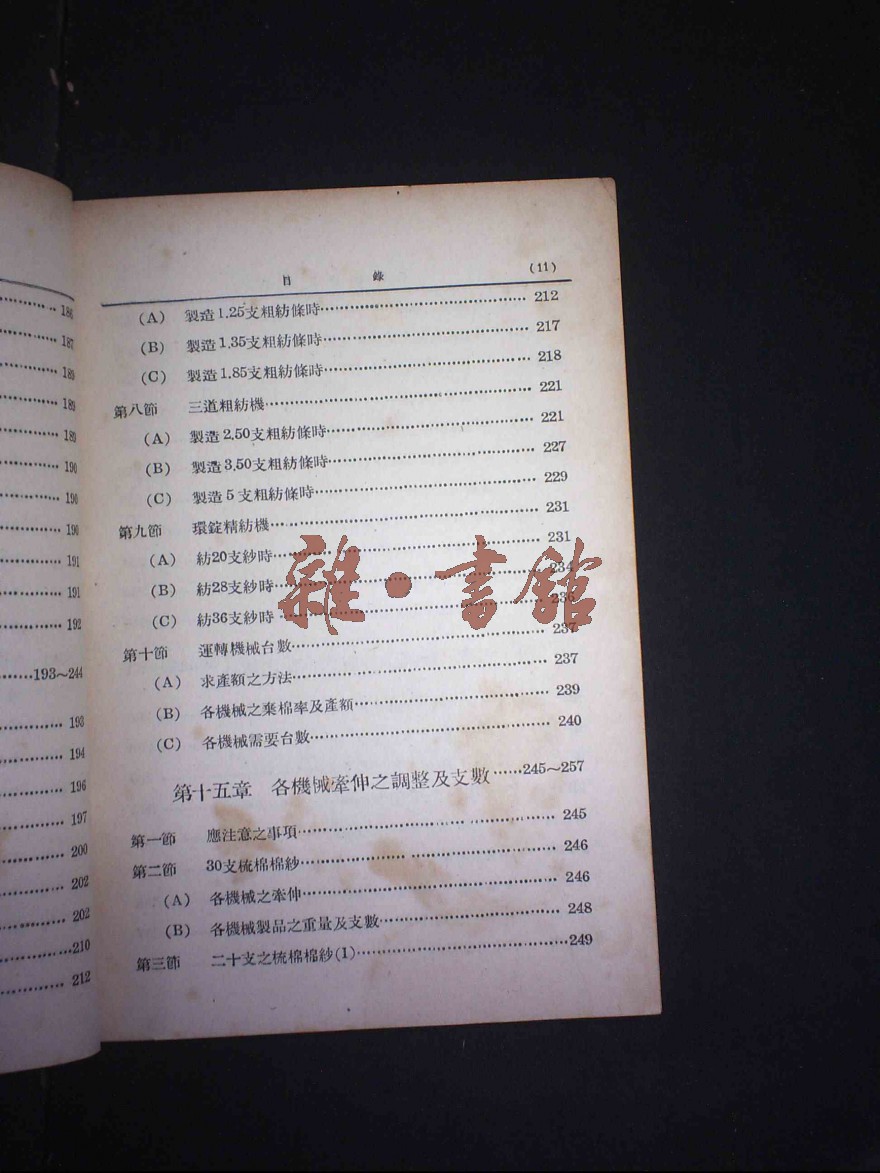 186
187
189
189
189
190
190
190
191
191
192
193～244
193
194
196
197
200
202
202
210
212
目 錄 (11)
(A) 製造1.25支粗紡條時 212
(B) 製造1.35支粗紡條時 217
(C) 製造1.85支粗紡條時 218
第八節 三道粗紡機 221
(A) 製造2.50支粗紡條時 221
(B) 製造3.50支粗紡條時 227
(C) 製造5支粗紡條時 229
第九節 環錠精紡機 231
(A) 紡20支紗時 231
(B) 紡28支紗時 234
(C) 紡36支紗時
第十節 運轉機械台數 237
(A) 求產額之方法 237
(B) 各機械之棄棉率及產額 239
(C) 各機械需要台數 240
第十五章 各機械牽伸之調整及支數 245～257
第一節 應注意之事項 245
第二節 30支梳棉棉紗 246
(A) 各機械之牽伸 246
(B) 各機械製品之重量及支數 248
第三節 二十支之梳棉棉紗(1) 249
雜·書館